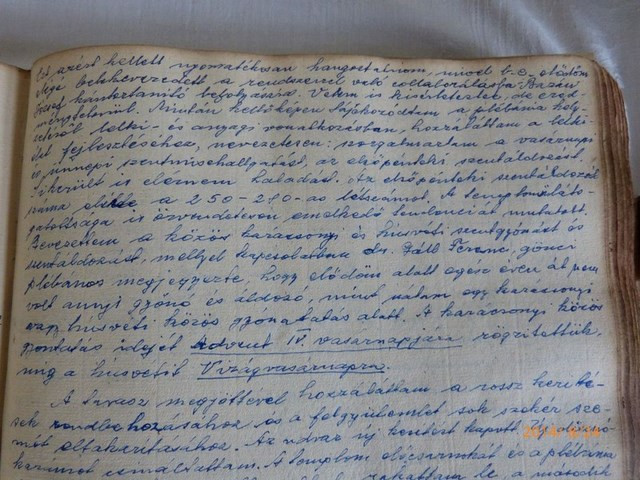 Ezt azért kellett nyomatékosan hangoztatnom, mivel b.e. elődöm
eléje bekövezedett a rendszerrel való collaborálásba Bazin
József kántortanító befolyására. Velem is kísérleteztek, de ered-
ménytelenül. Miután kellőképen tájékozódtam a plébánia hely-
zetéről lelki- és anyagi vonatkozásban, hozzáláttam a lelki-
élet fejlesztéséhez, nevezetesen: szorgalmaztam a vasárnapi
és ünnepi szentmisehallgatást, az elsőpénteki szentáldozást,
sikerült is elérnem haladást. Az elsőpénteki szentáldozók
száma elérte a 250-280-as létszámot. A templomláto-
gatottsága is örvendetesen emelkedő tendenciát mutatott.
Bevezettem a közös karácsonyi és húsvéti szentgyónást és
szentáldozást, mellyel kapcsolatban dr. Gáll Ferenc, gönci
plébános megjegyezte, hogy elődöm alatt egész éven át nem
volt annyi gyónó és áldozó, mint nálam egy karácsonyi
vagy húsvéti közös gyónatatás alatt. A karácsonyi közös
gyóntatás idejét Advent IV. vasárnapjára rögzítettük,
míg a húsvétit Virágvasárnapra.
A tavasz megjöttével hozzáláttam a rossz keríté-
sek rendbehozásához és a felgyülemlett sok szekér sze-
mét eltakarításához. Az udvar új kerítést kapott.
karámot csináltattam. A templom elocsarnokát és a plébánia
rakattam le, a második